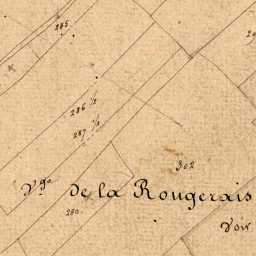 285
286 ½
287 ½
302
Vge de la Rougerais
280.
Voir